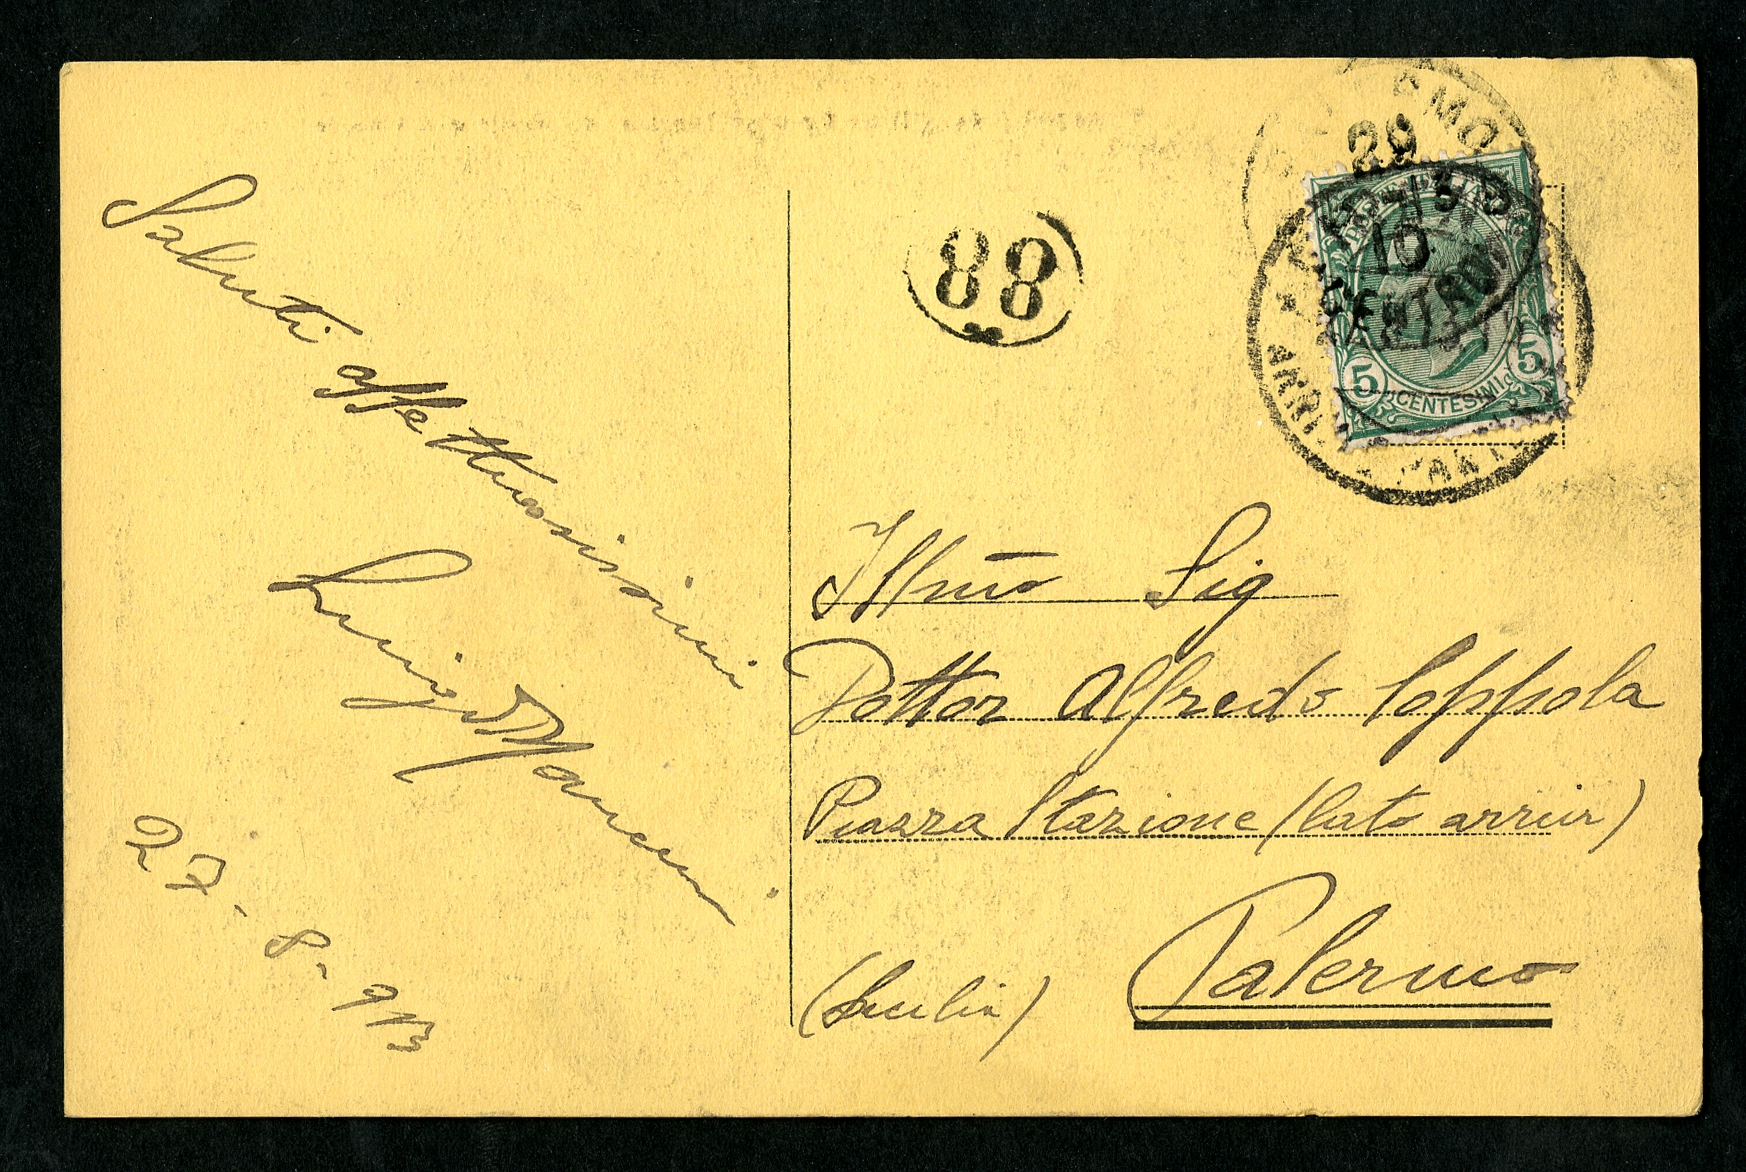 Saluti affettuosissimi
Luigi
27-8-913
88
29
10
CENTRO
5 5
CENTESIMI
Illmo Sig
Dottor Alfredo Coppola
Piazza Stazione (lato arrivi)
Palermo
(Sicilia)